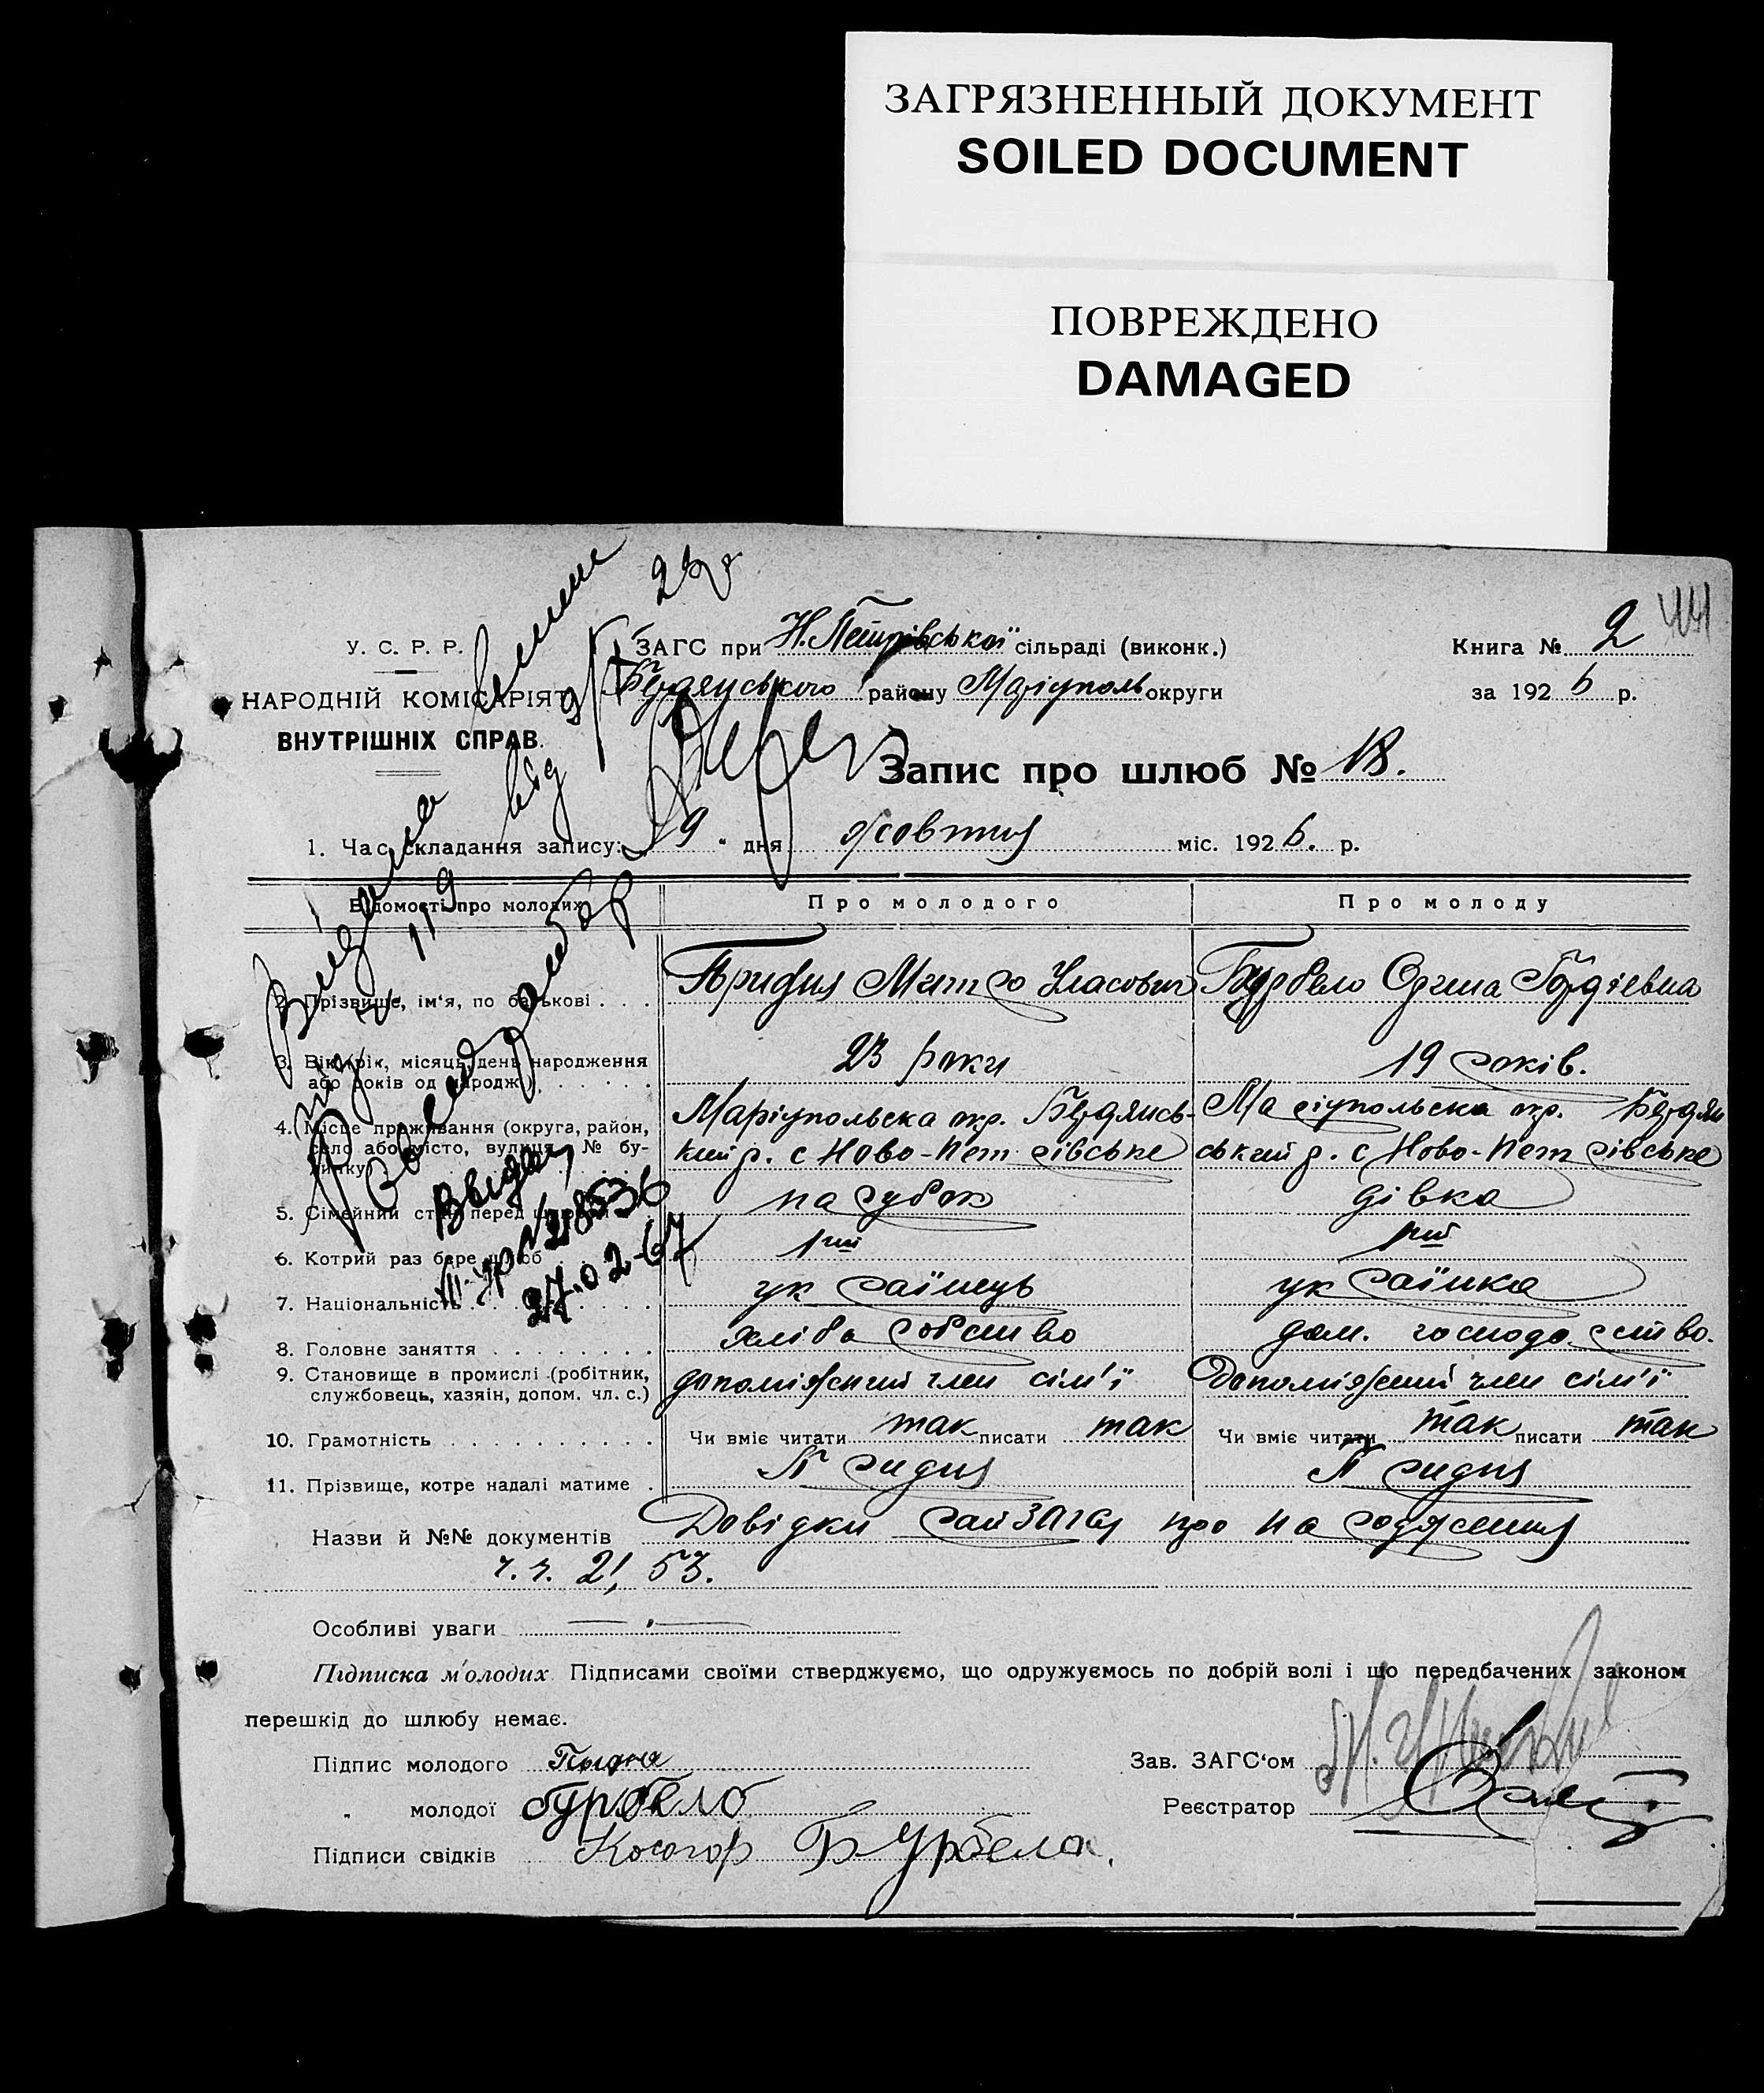 ЗАГРЯЗНЕННЫЙ ДОКУМЕНТ
SOILED DOCUMENT
ПОВРЕЖДЕНО
DAMAGED
44
У. С. Р. Р.
НАРОДНІЙ КОМІСАРІЯТ
ВНУТРІШНІХ СПРАВ.
ЗАГС при Н.Петрівської сільраді (виконк.)
Бердянського району Маріуполь округи
Книга № 2
за 1926 р.
Запис про шлюб № 18.
1. Час складання запису: 19 " дня жовтня міс. 1926. р.
Відомості про молодих Про молодого Про молоду
2. Прізвище, ім'я, по батькові . . . Придня Митро Уласович Бурбело Орина Гордієвна
3. Вік (рік, місяць, день народження
або років од народж.) . . . . . . 23 роки 19 років.
4. Місце проживання (округа, район, Маріупольська окр. Бердянсь- Маріупольска окр. Бердян
село або місто, вулиця, № бу- кий р. с Ново-Петрівське ський р. с Ново-Петрівське
динку)
5. Сімейний стан перед шлюбом парубок дівка
6. Котрий раз бере шлюб 1ий 1ий
7. Національність . . . . . . . . українець українка
8. Головне заняття . . . . . . . . хліборобство дом. господарство.
9. Становище в промислі (робітник,
службовець, хазяїн, допом. чл. с.) допоміжний член сім'ї Допоміжний член сім'ї
10. Грамотність . . . . . . . . . . . Чи вміє читати так писати так Чи вміє читати так писати так
11. Прізвище, котре надалі матиме . Придня Придня
Назви й №№ документів Довідки райзагса про народження
ч.ч. 21, 53.
Особливі уваги
Підписка молодих Підписами своїми стверджуємо, що одружуємось по добрій волі і що передбачених законом
перешкід до шлюбу немає.
Підпис молодого Придня Зав. ЗАГС'ом
" молодої бурбело Реєстратор
Підписи свідків Косогор Бурбела.
№ 218536
27.02-67